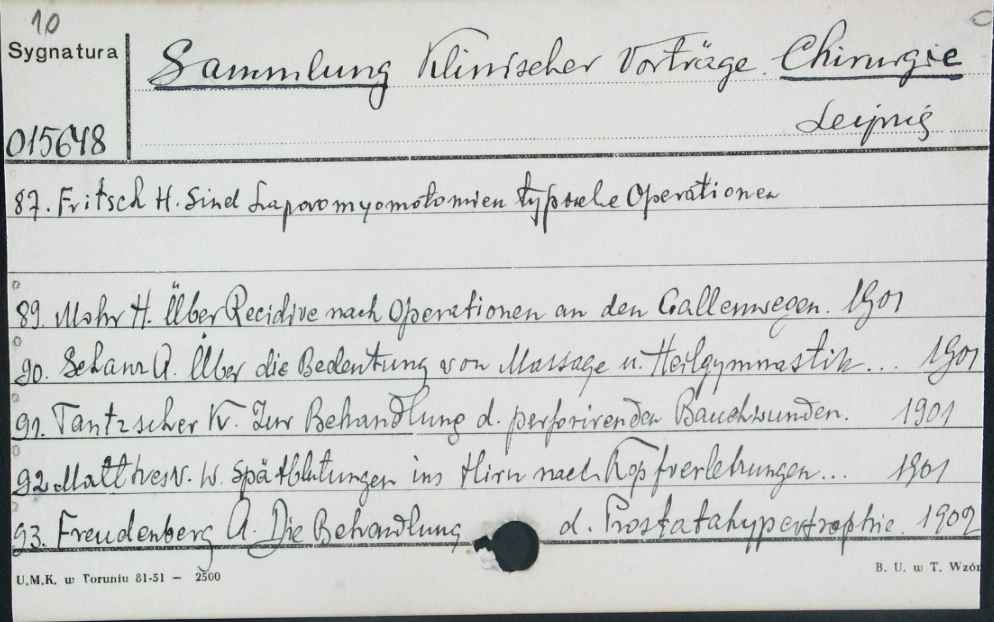 10
Sygnatura
Sammlung Klinischer Vorträge. Chirurgie
015648
Leipzig
87. Fritsch H. Sind Laparomyomotomien typische Operationen
89. Mohr H. Über Recidive nach Operationen an den Gallenwegen. 1901
90. Schanz A. Über die Bedeutung von Massage u. Heilgymnastik... 1901
91. Tantzscher K. Zur Behandlung d. perforirenden Bauchwunden. 1901
92. Matthes v. W. Spätblutungen ins Hirn nach Kopfverletzungen... 1901
93. Freudenberg A. Die Behandlung d. Prostatahypertrophie. 1902
U.M.K. w Toruniu 81-51 — 2500
B. U. w T. Wzór